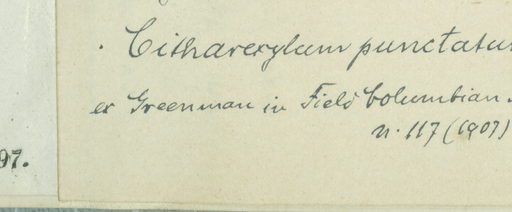 Citharexylum punctatu
ex Greenman in Field Columbian
n. 117 (1907)
97.